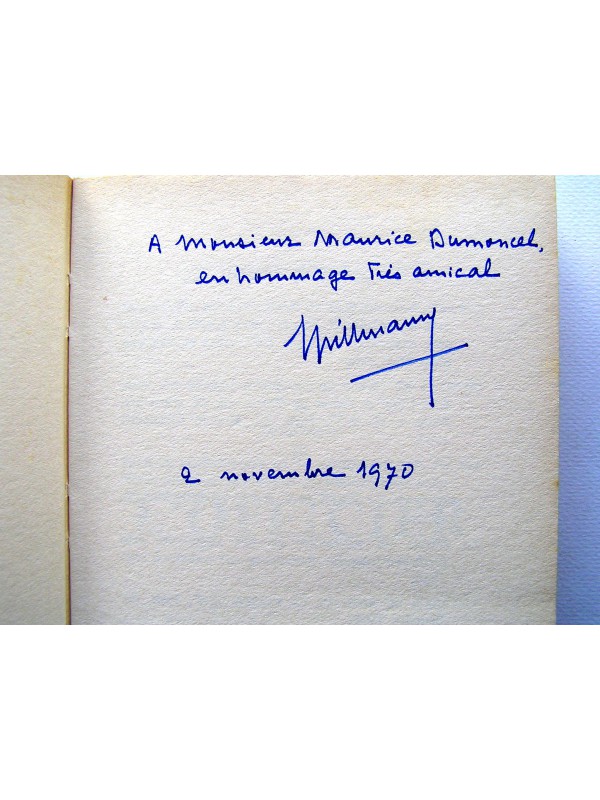 A Monsieur Maurice Dumoncel,
en hommage Très amical
Spillmann
2 novembre 1970